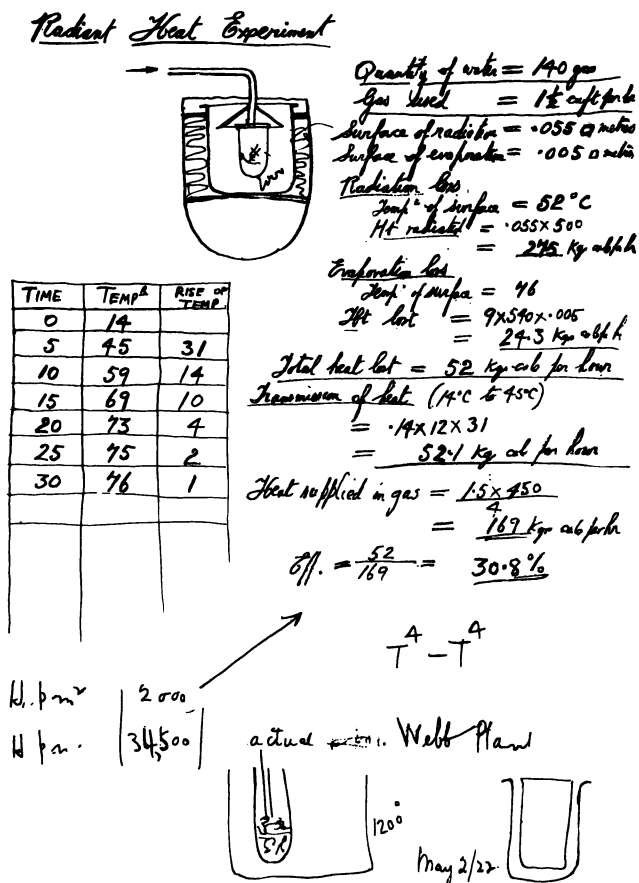 Radiant Heat Experiment
Quantity of water = 140 gms
Gas used = 1½ cuft per hr
Surface of radiation = .055 □ metres
Surface of evaporation = .005 □ metres
Radiation loss.
Temp of surface = 52°C
Ht radiated = .055 × 500
= 275 Kg cals ph
Evaporation loss
Temp of surface = 76
Ht lost = 9×540×.005
= 24.3 Kgs cals p h
Total heat lost = 52 Kgs cals per hour
Transmission of heat (14°C to 45°C)
= .14 × 12 × 31
= 52.1 Kg cal per hour
Heat supplied in gas = 1.5 × 450
4
= 169 Kgs cals per hr
Eff. = 52 / 169 = 30.8%
TIME TEMPR RISE OF TEMP
0 14
5 45 31
10 59 14
15 69 10
20 73 4
25 75 2
30 76 1
T⁴ – T⁴
H. p m² 2000
H p m. 34,500
actual Webb Plant
120°
May 2/22